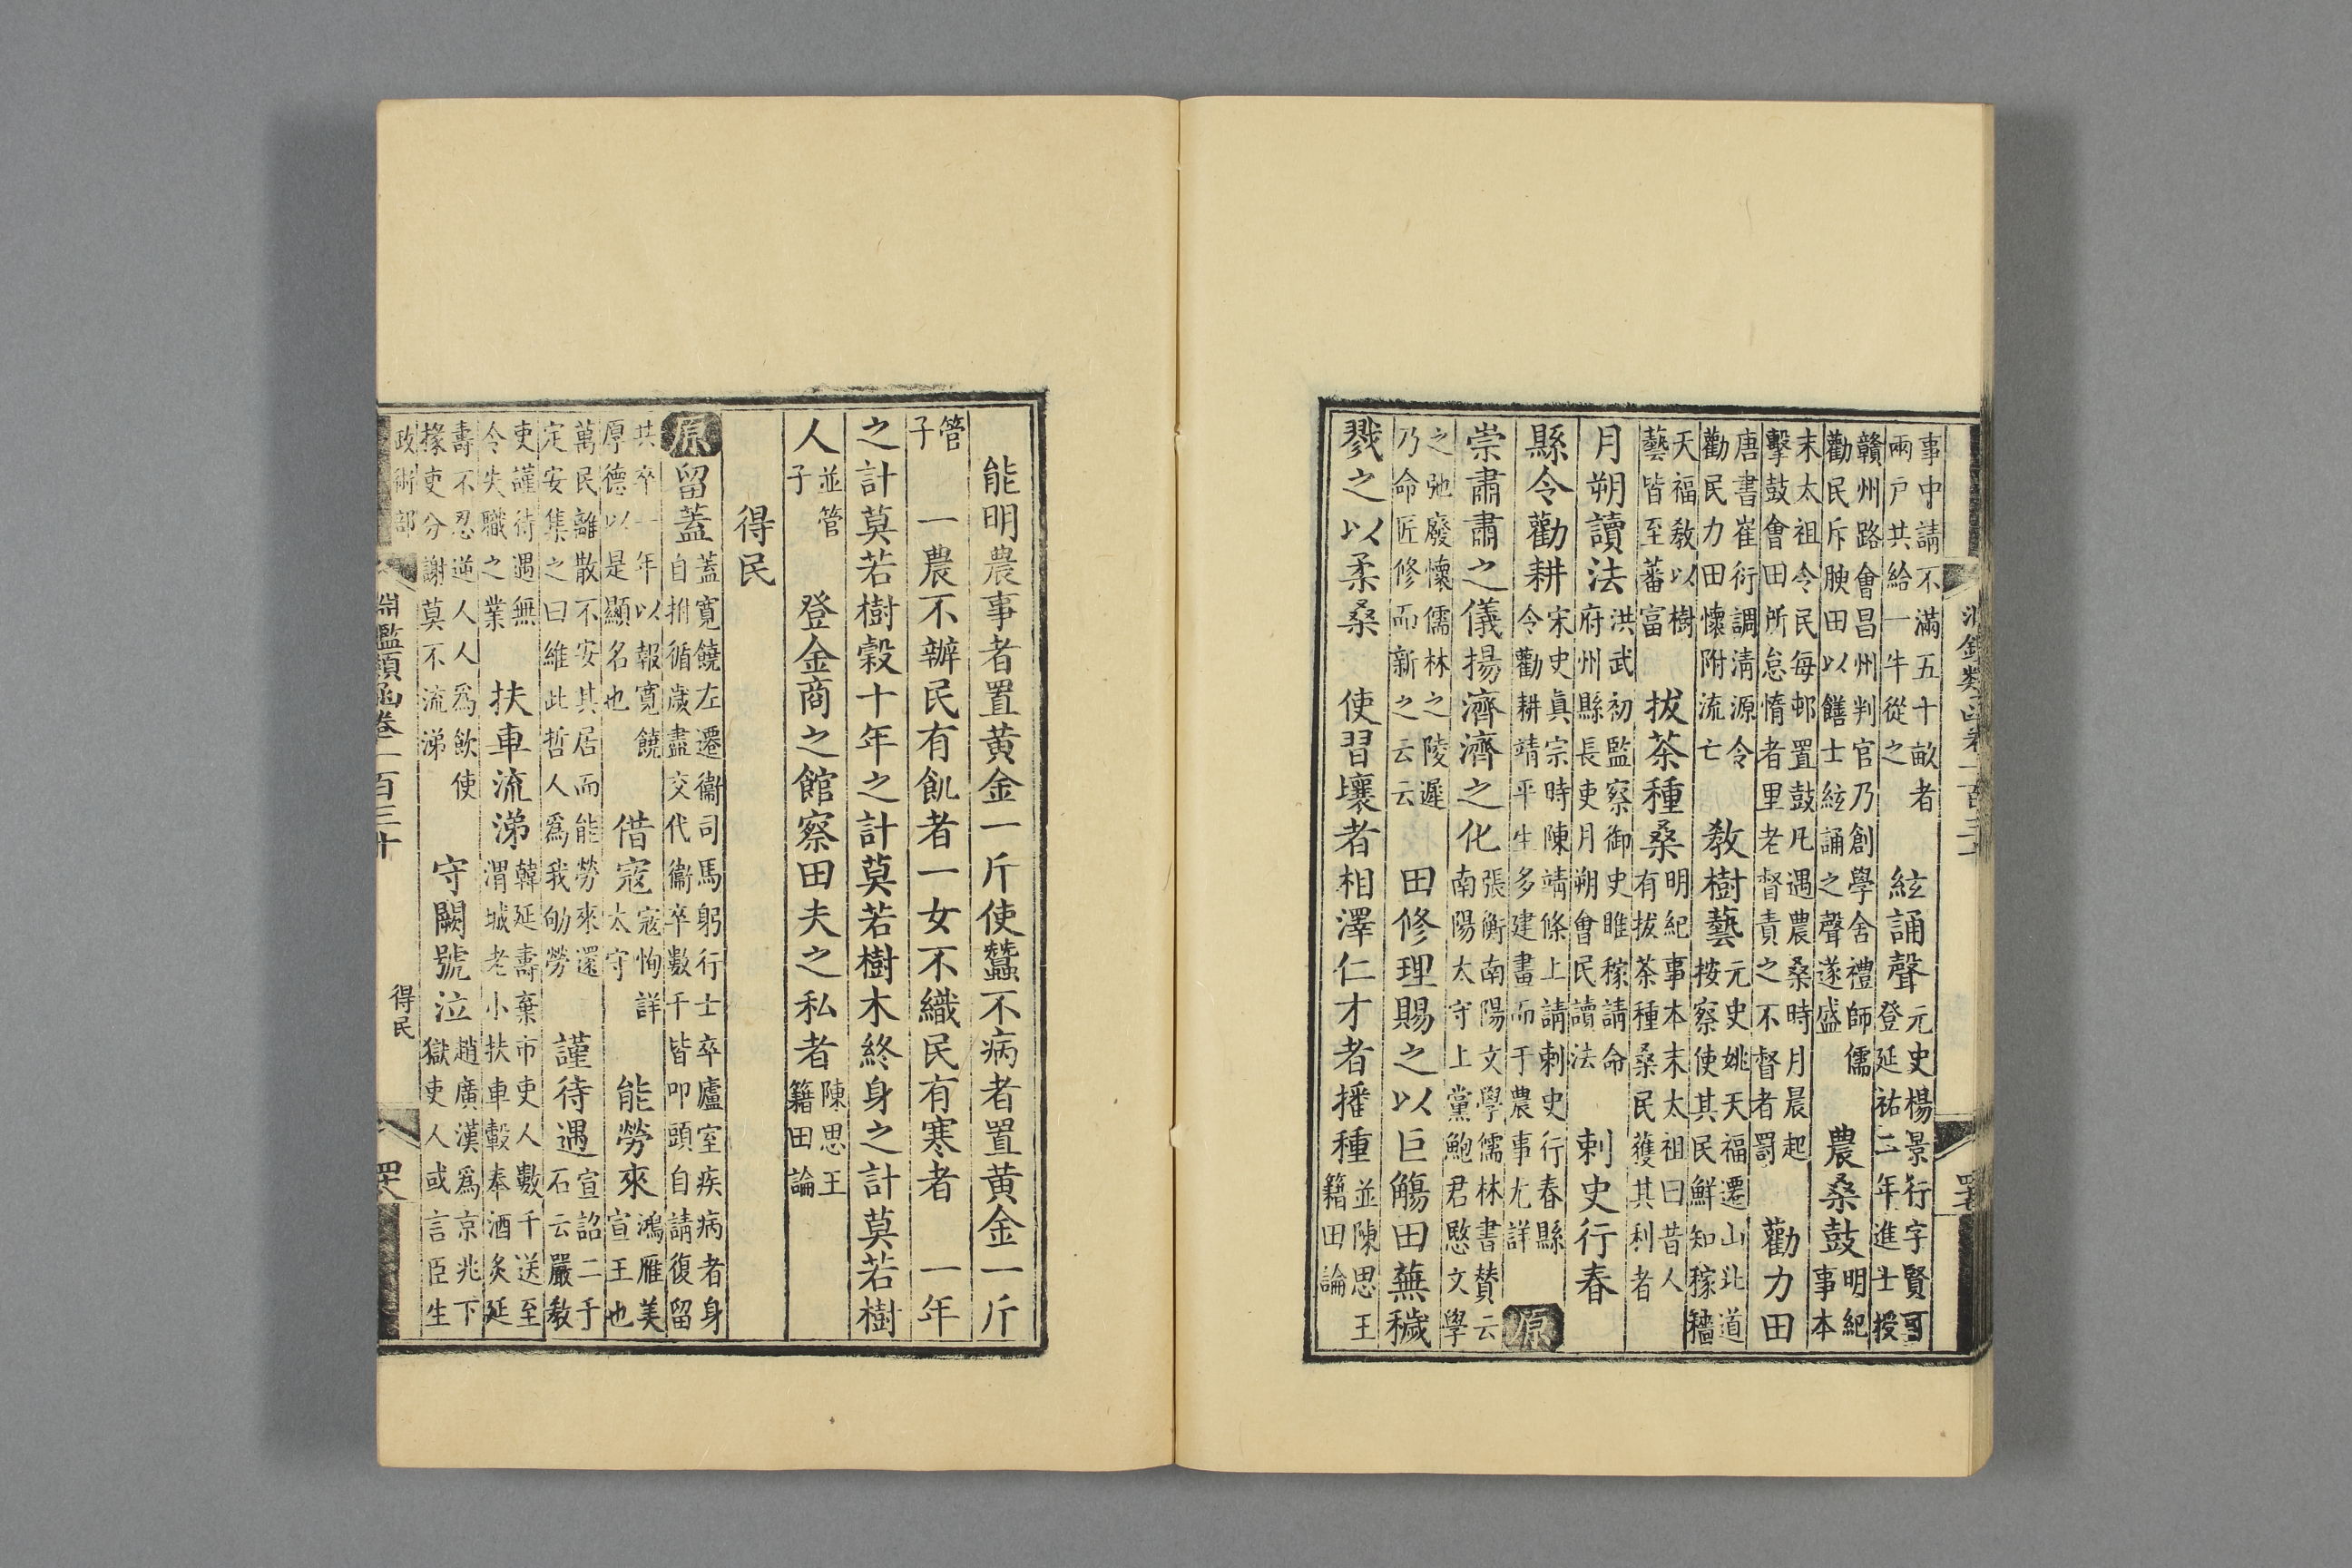 事中請不滿五十畝者兩戶共給一牛從之　絃誦聲元史楊景行字賢可登延祐二年進士授
贛州路會昌州判官乃創學舍禮師儒勸民斥腴田以饍士絃誦之聲遂盛　農桑鼓明紀事本
末太祖令民每邨置鼓凡遇農桑時月晨起擊鼓會田所怠惰者里老督責之不督者罰　勸力田
唐書崔衍調淸源令勸民力田懷附流亡　敎樹藝元史姚天福遷山北道按察使其民鮮知稼穡
天福敎以樹藝皆至蕃富　拔茶種桑明紀事本末太祖曰昔人有拔茶種桑民獲其利者
月朔讀法洪武初監察御史睢稼請命府州縣長吏月朔會民讀法　刺史行春
縣令勸耕宋史眞宗時陳靖條上請刺史行春縣令勸耕靖平生多建畫而于農事尤詳　原
崇肅肅之儀揚濟濟之化張衡南陽文學儒林書贊云南陽太守上黨鮑君愍文學
之弛廢懷儒林之陵遲乃命匠修而新之云云　田修理賜之以巨觴田蕪穢
戮之以柔桑　使習壤者相澤仁才者播種並陳思王籍田論
能明農事者置黃金一斤使蠶不病者置黃金一斤
管子　一農不辦民有飢者一女不織民有寒者　一年
之計莫若樹穀十年之計莫若樹木終身之計莫若樹
人並管子　登金商之館察田夫之私者陳思王籍田論
得民
原留蓋蓋寬饒左遷衞司馬躬行士卒廬室疾病者身自拊循歲盡交代衞卒數千皆叩頭自請復留
共卒一年以報寬饒厚德以是顯名也　借寇寇恂詳太守　能勞來鴻雁美宣王也
萬民離散不安其居而能勞來還定安集之曰維此哲人爲我劬勞　謹待遇宣詔二千石云嚴敎
吏謹待遇無令失職之業　扶車流涕韓延壽棄市吏人數千送至渭城老小扶車轂奉酒炙延
壽不忍逆人人爲飮使掾吏分謝莫不流涕　守闕號泣趙廣漢爲京兆下獄吏人或言臣生
政術部　得民
淵鑑類函卷一百三十